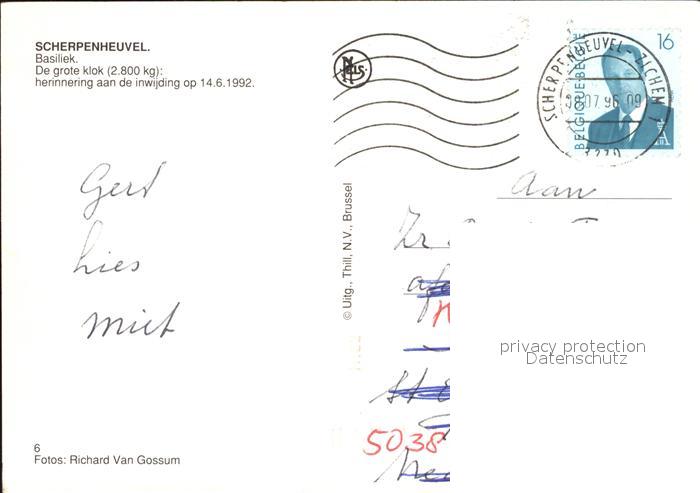 SCHERPENHEUVEL.
Basiliek.
De grote klok (2.800 kg):
herinnering aan de inwijding op 14.6.1992.
NELS.
SCHERPENHEUVEL-ZICHEM 1
07.96 09
3270
BELGIQUE-BELGIË
16
Aan
Gerd
Lies
Miet
© Uitg., Thill, N.V., Brussel
Zr
privacy protection
Datenschutz
St
5038
6
Fotos: Richard Van Gossum